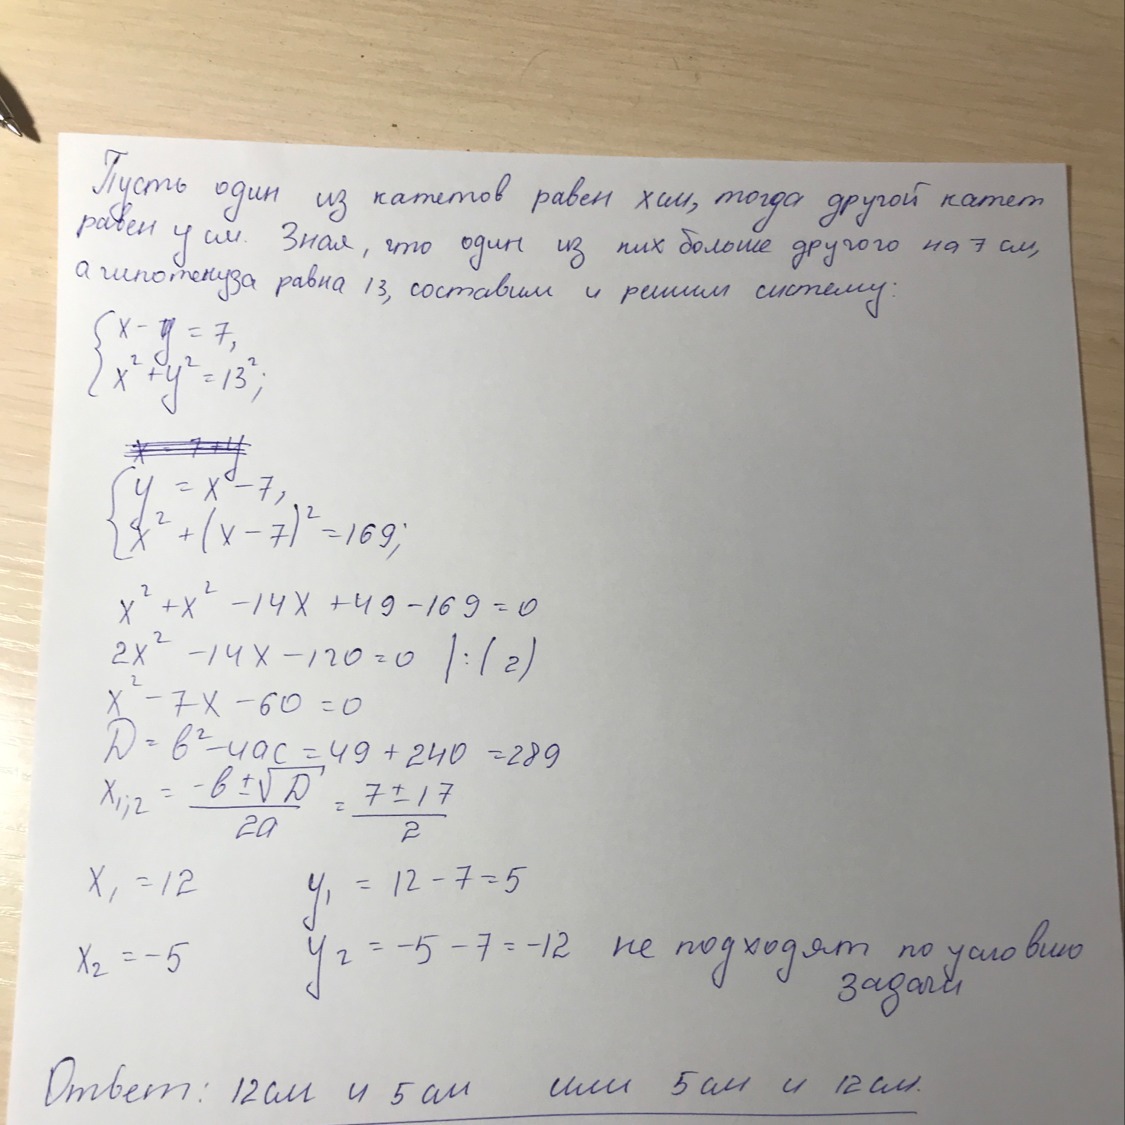 Пусть один из катетов равен x см, тогда другой катет
равен y см. Зная, что один из них больше другого на 7 см,
а гипотенуза равна 13, составим и решим систему:
{ x - y = 7,
x² + y² = 13²;
x = 7 + y
{ y = x - 7,
x² + (x - 7)² = 169;
x² + x² - 14x + 49 - 169 = 0
2x² - 14x - 120 = 0 | : (2)
x² - 7x - 60 = 0
D = b² - 4ac = 49 + 240 = 289
x₁;₂ = (-b ± √D)/2a = (7 ± 17)/2
x₁ = 12 y₁ = 12 - 7 = 5
x₂ = -5 y₂ = -5 - 7 = -12 не подходят по условию
задачи
Ответ: 12 см и 5 см или 5 см и 12 см.